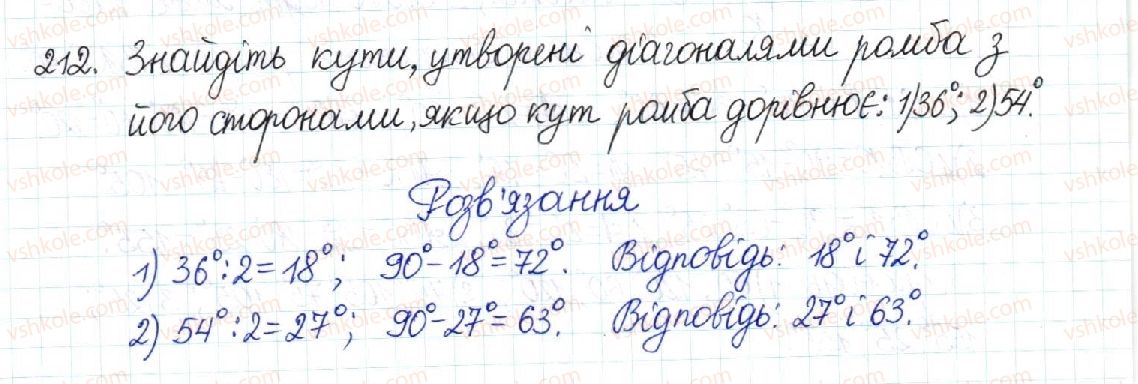 212. Знайдіть кути, утворені діагоналями ромба з
його сторонами, якщо кут ромба дорівнює: 1) 36°; 2) 54°.
Розв'язання
1) 36°:2=18°; 90°-18°=72°. Відповідь: 18° і 72°.
2) 54°:2=27°; 90°-27°=63°. Відповідь: 27° і 63°.
vshkole.com